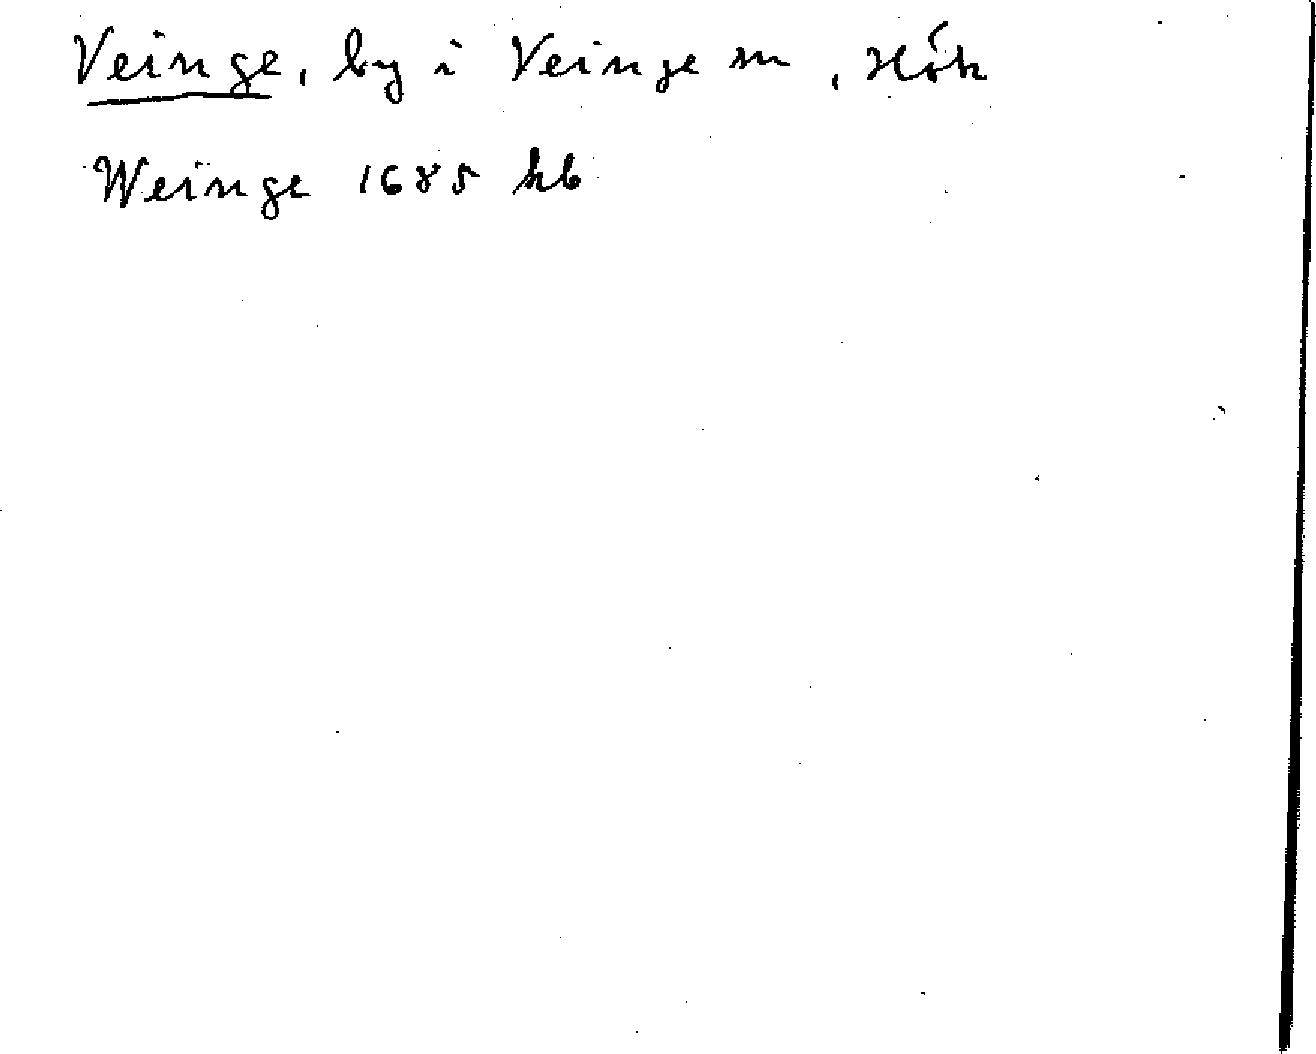 Veinge, by i Veinge sn, Hök
Weinge 1685 kb